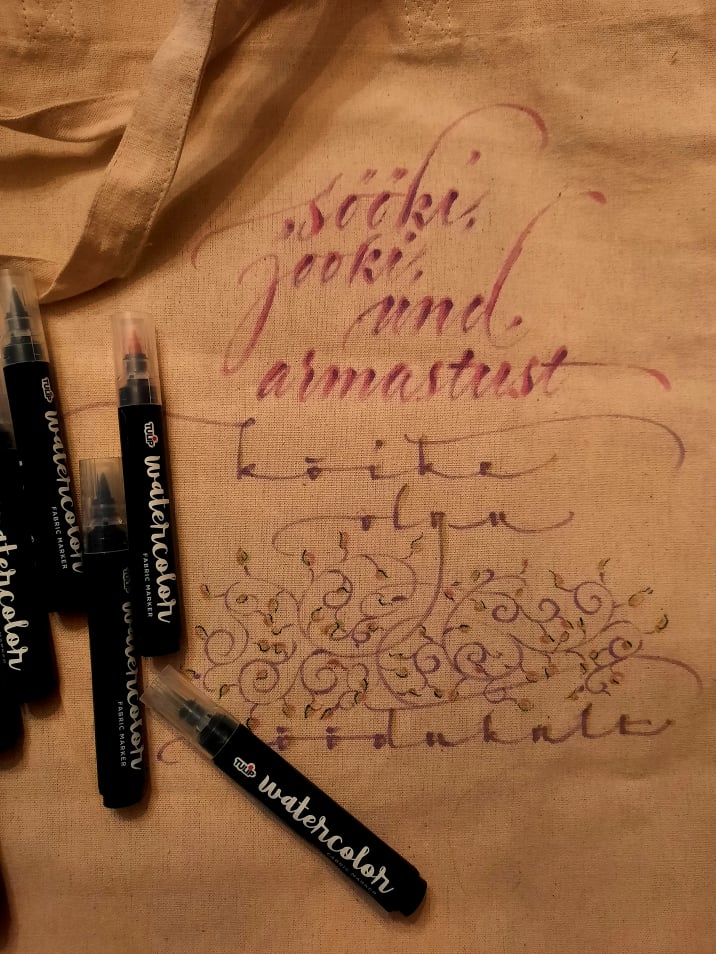 sööki,
jooki,
und
armastust
kõike
olgu
õõdukalt
TULIP
watercolor
FABRIC MARKER
TULIP
watercolor
FABRIC MARKER
watercolor
watercolor
FABRIC MARKER
TULIP
watercolor
FABRIC MARKER